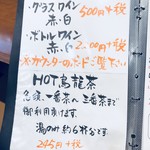 ・グラスワイン
赤・白 500円+税
・ボトルワイン
赤・白 2,000円+税
※カウンターのボードご覧下さい
HOT烏龍茶
急須、一番茶〜三番茶まで
御利用頂けます。
湯のみ約6杯分です
245円+税